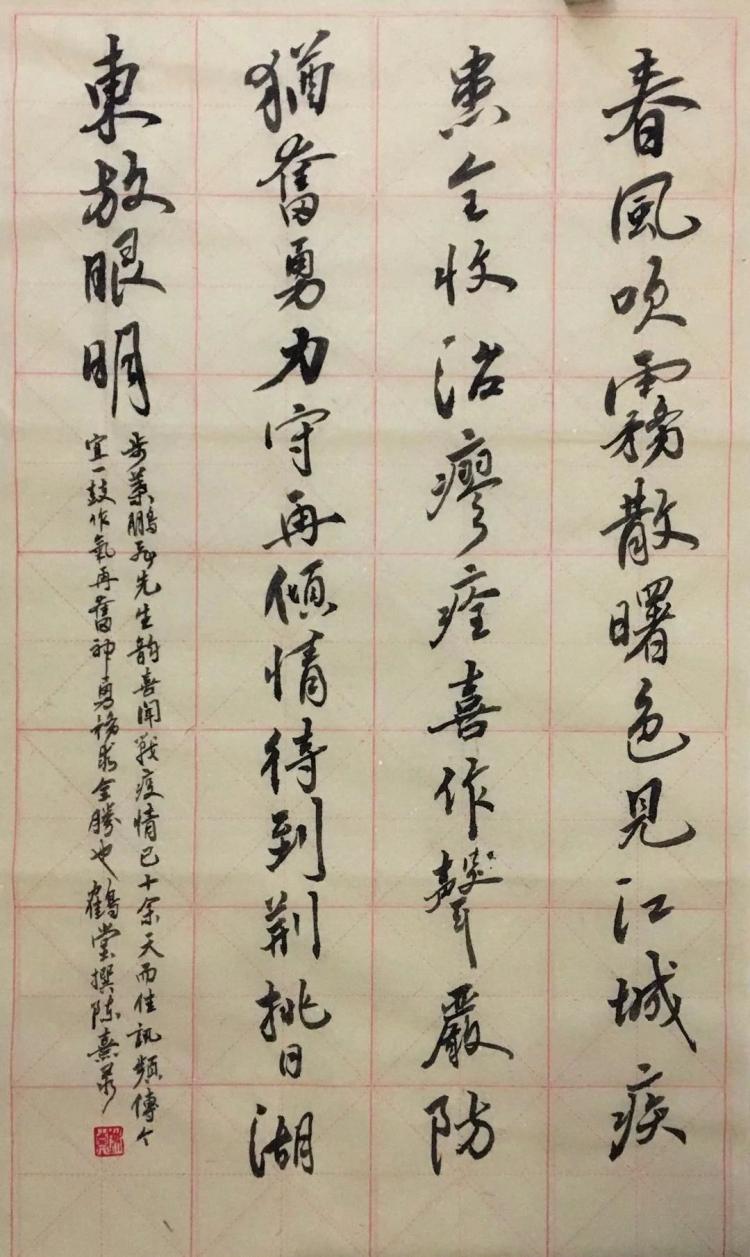 春風吹霧散曙色見江城疾
患全收治瘳痊喜作聲嚴防
猶奮勇力守再傾情待到荆桃日湖
東放眼明
步葉鵬飛先生韵喜聞戰疫情已十余天而佳訊頻傳今
宜一鼓作氣再奮神勇務求全勝也鶴堂撰陈熹录